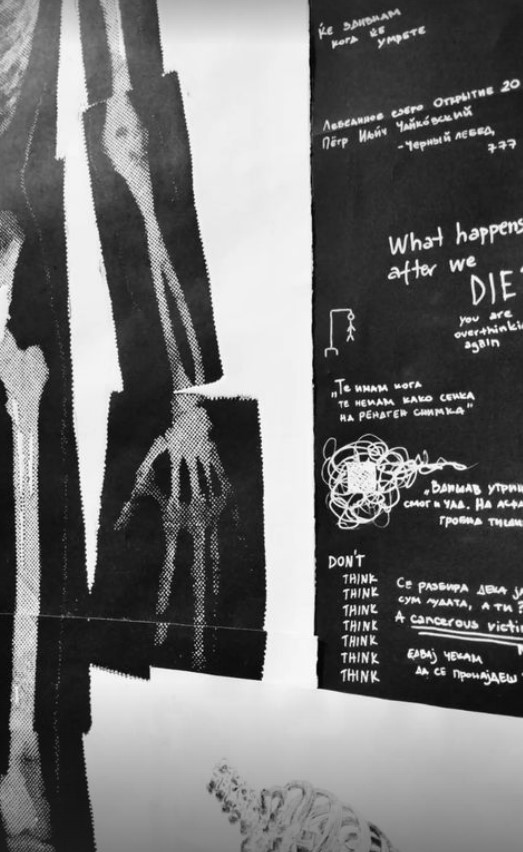 ЌЕ ЗДИВНАМ
КОГА ЌЕ
УМРЕТЕ
Лебединое озеро Открытие 20
Пётр Ильич Чайковский
-Черный лебед
777
What happens
after we
DIE?
you are
overthinking
again
„Те имам кога
те немам како сенка
на рендген снимка"
„Вдишав утрин
смог и чад. На асфа
гробна тиши
DON'T
THINK
THINK
THINK
THINK
THINK
THINK
THINK
Се разбира дека ја
сум лудата, а ти
A cancerous victi
Едвај чекам
да се пронајдеш